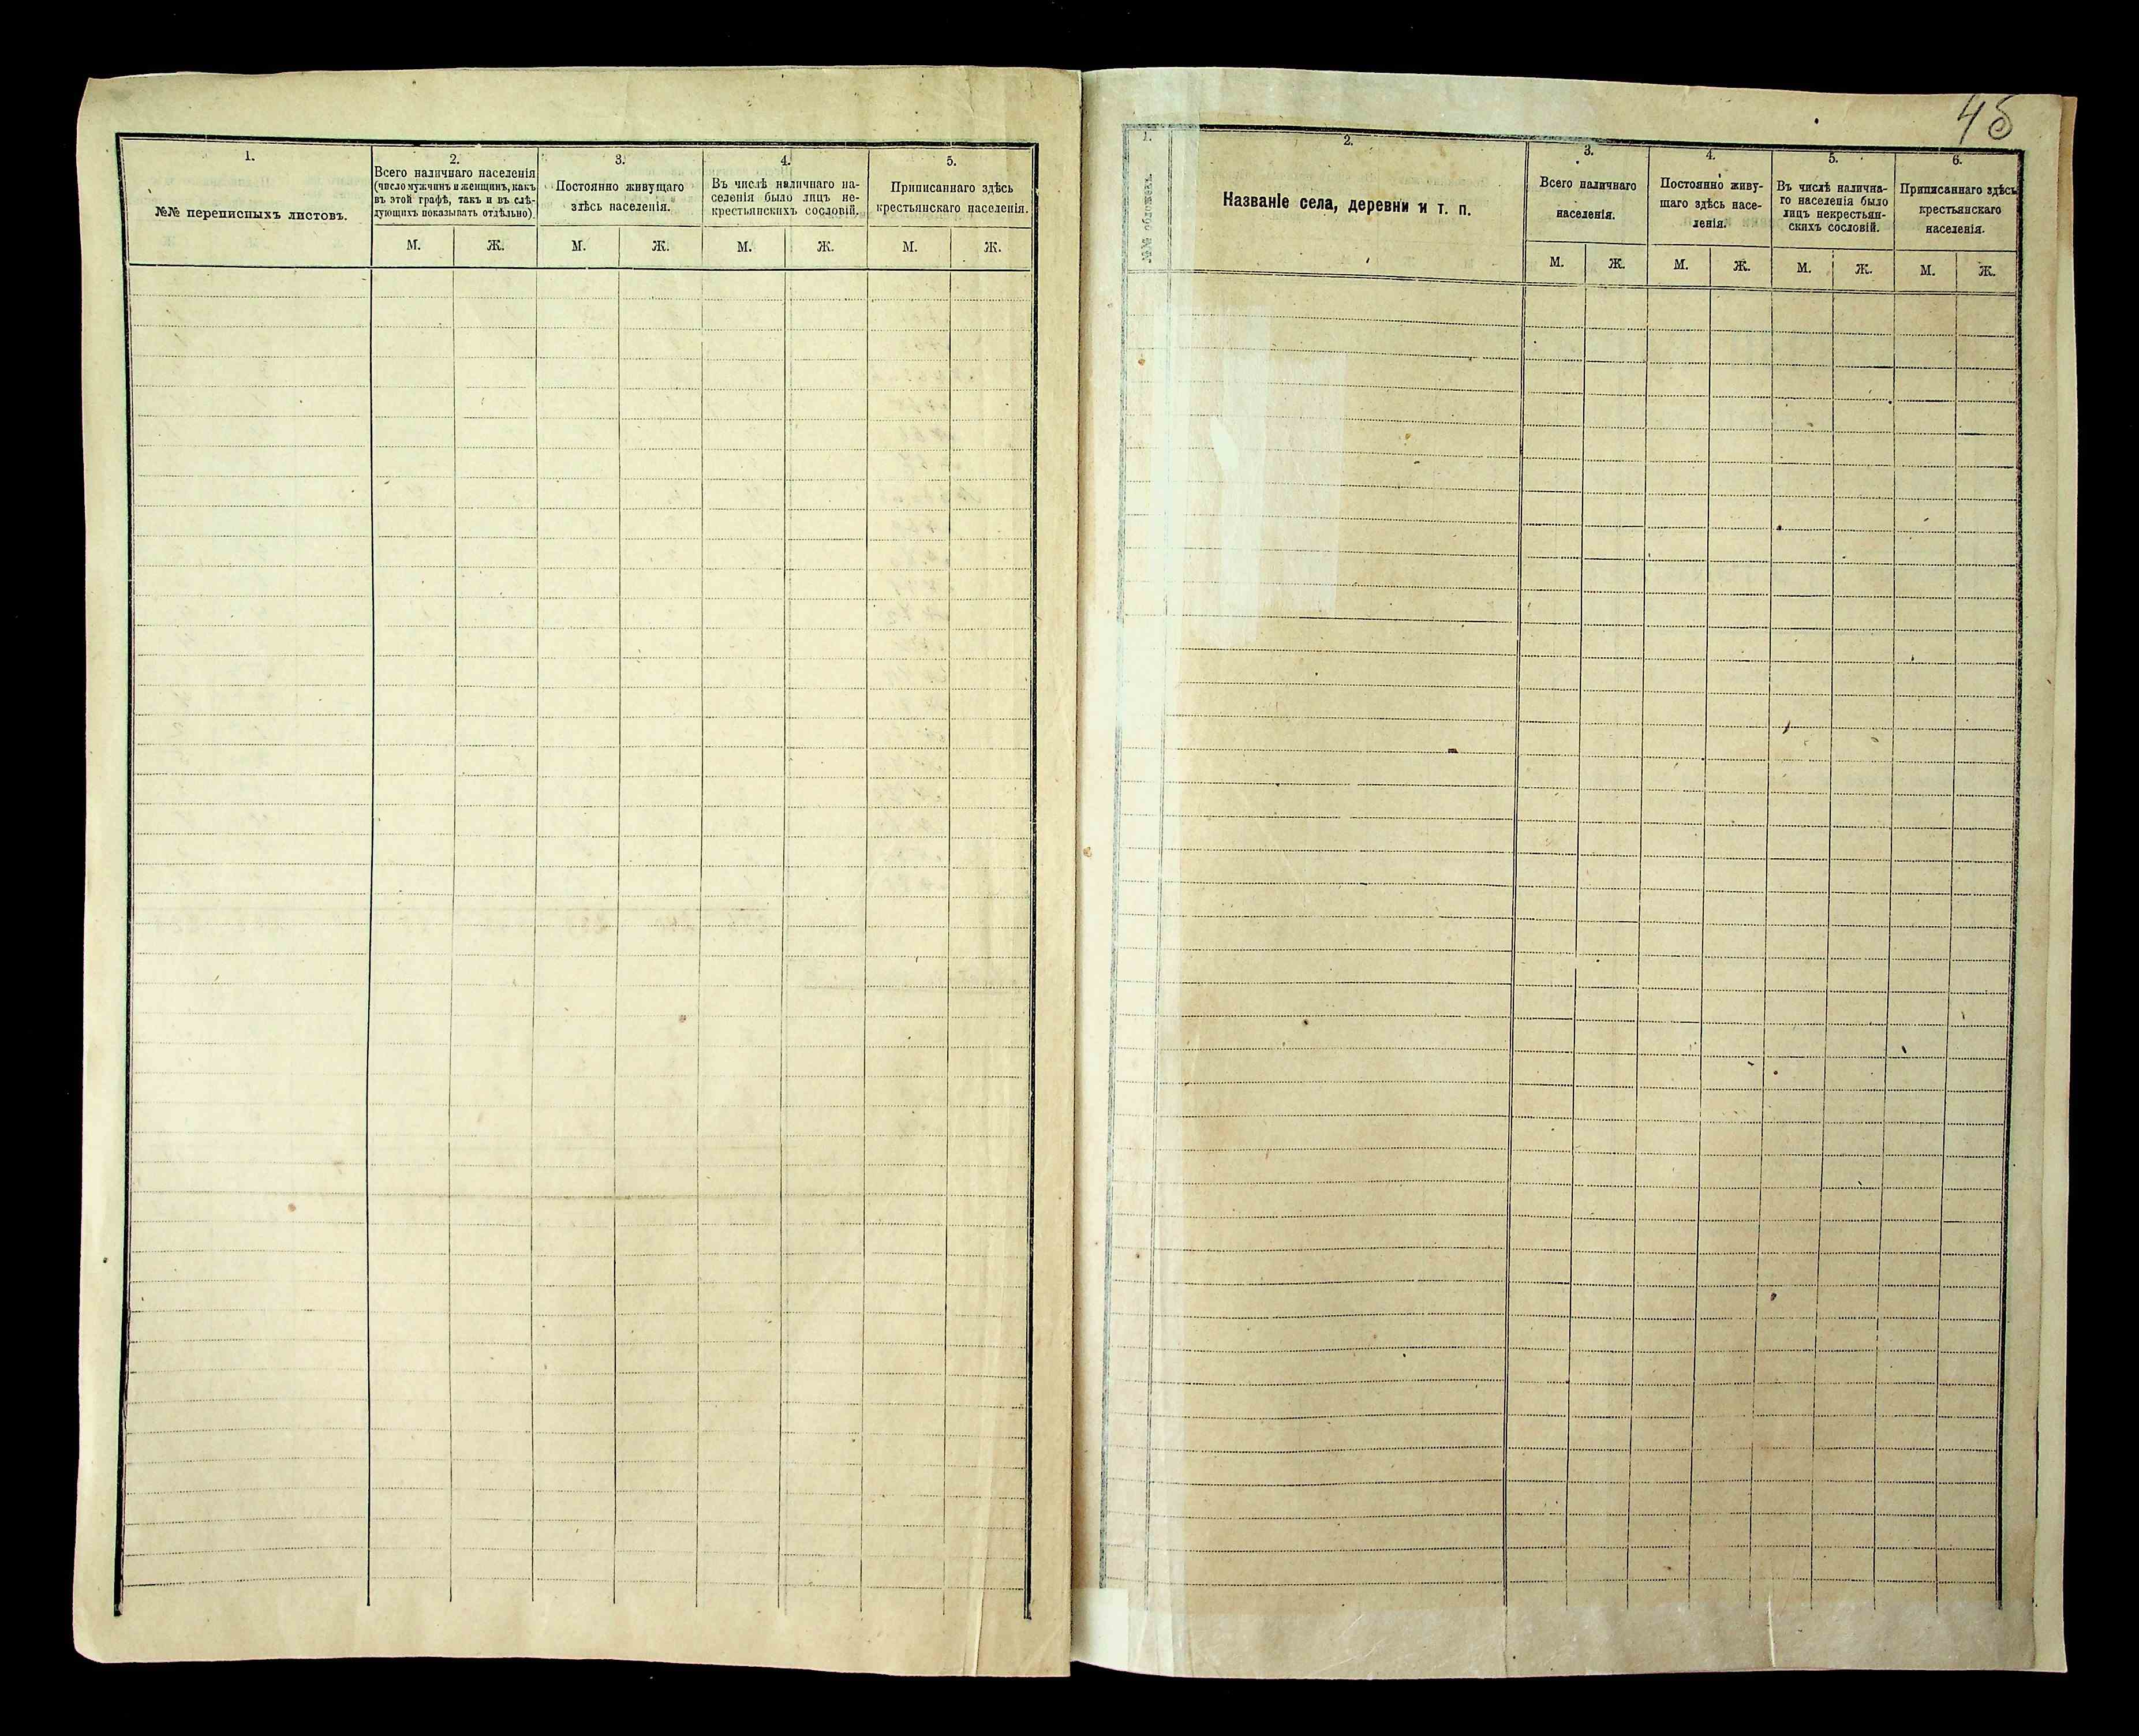 1.
№№ переписныхъ листовъ.
2.
Всего наличнаго населенія
(число мужчинъ и женщинъ, какъ
въ этой графѣ, такъ и въ слѣ-
дующихъ показывать отдѣльно).
М. Ж.
3.
Постоянно живущаго
здѣсь населенія.
М. Ж.
4.
Въ числѣ наличнаго на-
селенія было лицъ не-
крестьянскихъ сословій.
М. Ж.
5.
Приписаннаго здѣсь
крестьянскаго населенія.
М. Ж.
1.
№№ обложекъ.
2.
Названіе села, деревни и т. п.
3.
Всего наличнаго
населенія.
М. Ж.
4.
Постоянно живу-
щаго здѣсь насе-
ленія.
М. Ж.
5.
Въ числѣ налична-
го населенія было
лицъ некрестьян-
скихъ сословій.
М. Ж.
6.
Приписаннаго здѣсь
крестьянскаго
населенія.
М. Ж.